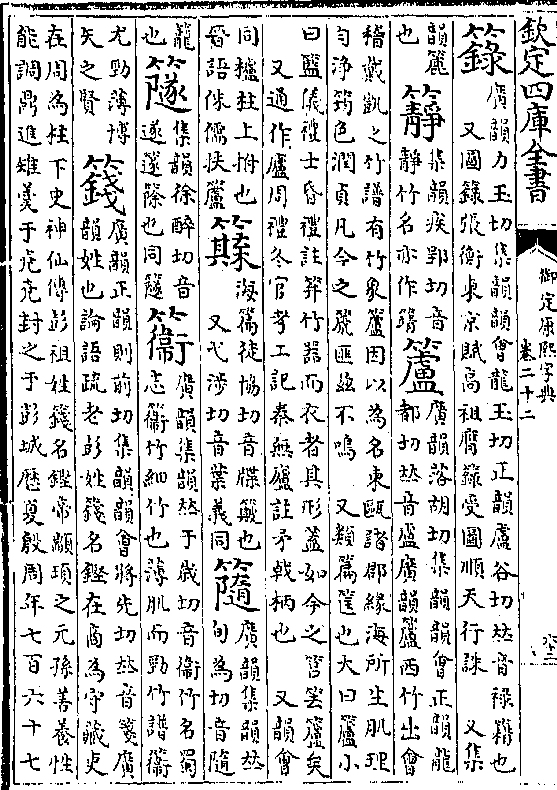 欽定四庫全書
御定康熙字典
卷二十二
籙
廣韻力玉切集韻韻會龍玉切正韻盧谷切𠀤音祿籍也
又圖籙張衡東京賦高祖膺籙受圖順天行誅 又集
韻簏
也
集韻疾郢切音
靜竹名亦作
籚
廣韻落胡切集韻韻會正韻龍
都切𠀤音盧廣韻籚西竹出會
稽戴凱之竹譜有竹象籚因以為名東甌諸郡緣海所生肌理
勻淨筠色潤貞凡今之篪匪茲不鳴 又類篇筐也大曰籚小
曰籃儀禮士昏禮註笲竹器而衣者其形蓋如今之筥䇬籚矣
又通作廬周禮冬官考工記秦無廬註矛戟柄也 又韻會
同櫨柱上柎也
晉語侏儒扶籚
海篇徒協切音牒籋也
又弋涉切音葉義同
廣韻集韻𠀤
旬為切音隨
籠
也
集韻徐醉切音
遂籧篨也同
廣韻集韻𠀤于歲切音衞竹名蜀
志䉣竹細竹也薄肌而勁竹譜䉣
尤勁薄博
矢之賢
籛
廣韻正韻則前切集韻韻會將先切𠀤音箋廣
韻姓也論語疏老彭姓籛名鏗在商為守藏吏
在周為柱下史神仙傳彭祖姓籛名鏗帝顓頊之元孫善養性
能調鼎進雉羹于堯堯封之于彭城歷夏殷周年七百六十七